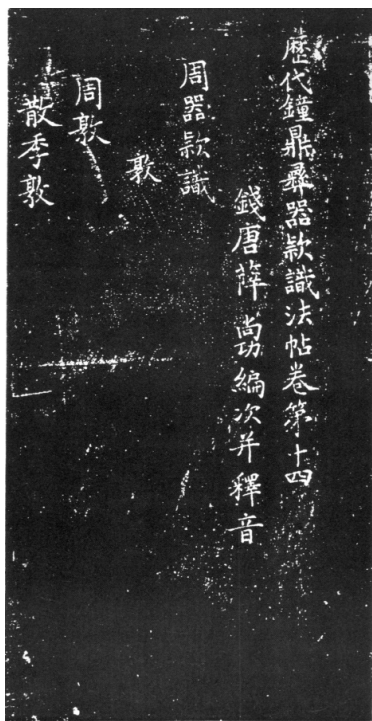 歷代鐘鼎彝器款識法帖卷第十四
錢唐薛尚功編次并釋音
周器款識
敦
周敦
散季敦